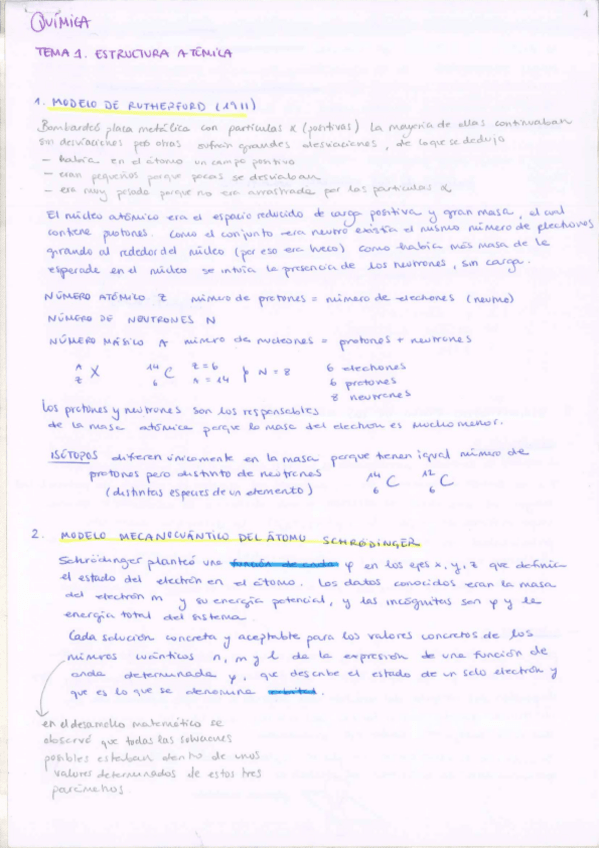 QUÍMICA
1
TEMA 1. ESTRUCTURA ATÓMICA
1. MODELO DE RUTHERFORD (1911)
Bombardeó placa metálica con partículas α (positivas) la mayoría de ellas continuaban
sin desviaciones pero otras sufrían grandes desviaciones, de lo que se dedujo
- había en el átomo un campo positivo
- eran pequeños porque pocas se desviaban
- era muy pesado porque no era arrastrada por las partículas α
El núcleo atómico era el espacio reducido de carga positiva y gran masa, el cual
contiene protones. Como el conjunto era neutro existía el mismo número de electrones
girando al rededor del núcleo (por eso era hueco) como había más masa de la
esperada en el núcleo se intuía la presencia de los neutrones, sin carga.
NÚMERO ATÓMICO Z número de protones = número de electrones (neutro)
NÚMERO DE NEUTRONES N
NÚMERO MÁSICO A número de nucleones = protones + neutrones
A Z X 14 6 C Z=6 A=14 } N=8 6 electrones
6 protones
8 neutrones
Los protones y neutrones son los responsables
de la masa atómica porque la masa del electron es mucho menor.
ISÓTOPOS difieren únicamente en la masa porque tienen igual número de
protones pero distinto de neutrones 14 6 C 12 6 C
(distintas especies de un elemento)
2. MODELO MECANOCUÁNTICO DEL ÁTOMO SCHRÖDINGER
Schrödinger planteó una función de onda φ en los ejes x, y, z que definía
el estado del electrón en el átomo. Los datos conocidos eran la masa
del electrón m y su energía potencial, y las incógnitas son φ y la
energía total del sistema.
Cada solución concreta y aceptable para los valores concretos de los
números cuánticos n, m y l da la expresión de una función de
onda determinada φ, que describe el estado de un solo electrón y
que es lo que se denomina orbital.
en el desarrollo matemático se
observó que todas las soluciones
posibles estaban dentro de unos
valores determinados de estos tres
parámetros